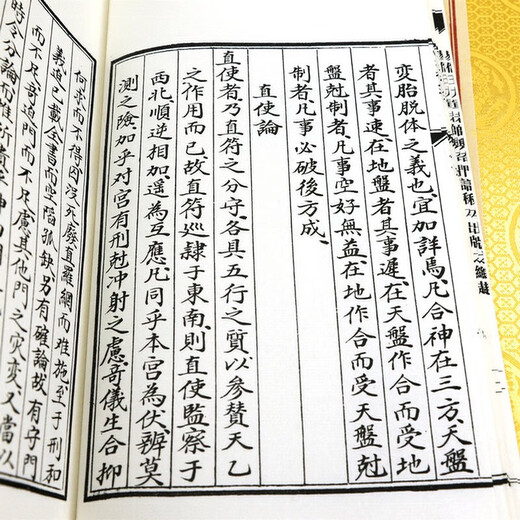 变胎脱体之義也宜加詳焉凡合神在三方天盤
者其事速在地盤者其事遲在天盤作合而受地
盤尅制者凡事空好無益在地作合而受天盤尅
制者凡事必破後方成
直使論
直使者乃直符之分守各具五行之質以参賛天乙
之作用而已故直符巡隸于東南則直使監察于
西北順逆相加遥為互應凡同乎本宫為伏辨莫
測之險加乎对宫有刑尅冲射之慮竒儀生合抑
何景而不得囚沒死廢直羅網而难施至于刑和
義迫已載全書而空陷孤缺另有確論故有守門
而不尽吾迫門而不尽慮其他門之灾变又當以
時令分論而